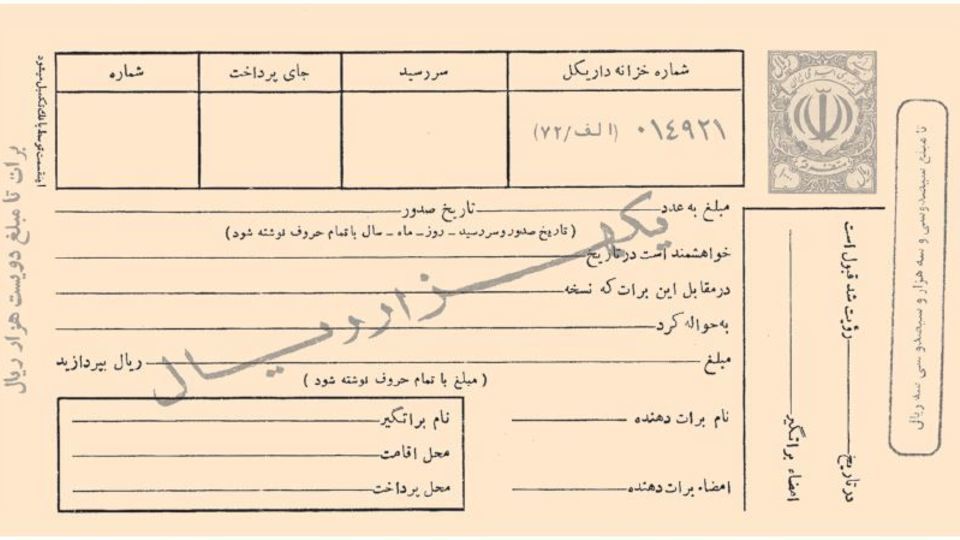 شماره خزانه داریکل
سررسید
جای پرداخت
شماره
۰۱۴۹۲۱ (الف/۷۲)
اینقسمت توسط بانك تكمیل میشود
برات تا مبلغ دویست هزار ریال
یکهزار ریال
مبلغ به عدد تاریخ صدور
( تاریخ صدور و سررسید ـ روز ـ ماه ـ سال با تمام حروف نوشته شود )
خواهشمند است در تاریخ
در مقابل این برات که نسخه
به حواله کرد
مبلغ ریال بپردازید
( مبلغ با تمام حروف نوشته شود )
نام برات دهنده
امضاء برات دهنده
نام براتگیر
محل اقامت
محل پرداخت
رؤیت شد قبول است
در تاریخ
امضاء براتگیر
تا مبلغ سیصد و سی و سه هزار و سیصد و سی سه ریال